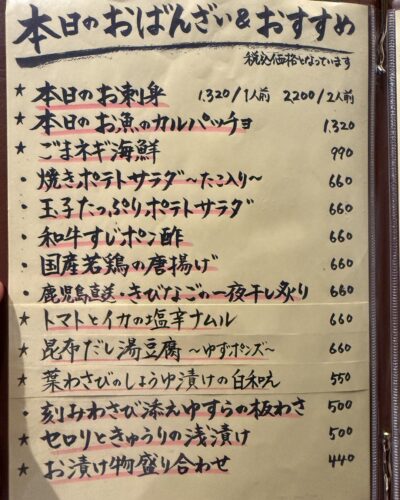 本日のおばんざい&おすすめ
税込価格となっています
★ 本日のお刺身 1,320/1人前 2,200/2人前
★ 本日のお魚のカルパッチョ 1,320
★ ごまネギ海鮮 990
・焼きポテトサラダ~たこ入り~ 660
・玉子たっぷりポテトサラダ 660
・和牛すじポン酢 660
・国産若鶏の唐揚げ 660
・鹿児島直送・きびなごの一夜干し炙り 660
★ トマトとイカの塩辛ナムル 660
★ 昆布だし湯豆腐 ~ゆずポンズ~ 660
★ 葉わさびのしょうゆ漬けの白和え 550
・刻みわさび添えゆすらの板わさ 500
★ セロリときゅうりの浅漬け 500
★ お漬け物盛り合わせ 440